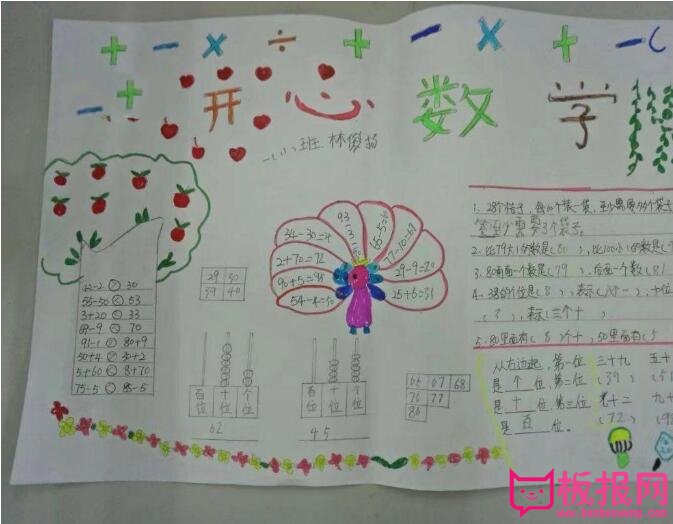 + - × ÷ + - × + -
- + 开心 数学
一(1)班 林俊扬
1. 28个桔子，每10个装一袋，至少需要几个袋子
答：至少需要3个袋子。
2. 比79大1的数是(80)，比100小1的数是(
3. 80前面一个数是(79)，后面一个数(81
4. 38的个位是(8)，表示(八个一)，十位
(3)，表示(三个十)
5. 80里面有(8)个十，50里面有(5
93-3=90
34-30=4
2+70=72
90+5=95
77-10=67
29-9=20
25+6=31
29 30
39 40
55-50 < 53
3+20 < 33
69-9 < 70
91-1 > 80+9
50+4 > 30+2
5+60 < 8+70
75-5 < 85-5
百位 十位 个位
62
百位 十位 个位
45
66 67 68
76 77
86
从右边起，第一位
是个位，第二位
是十位，第三位
是百位。
三十九
(39)
七十二
(72)
五十
(5
九十
(9
板报网